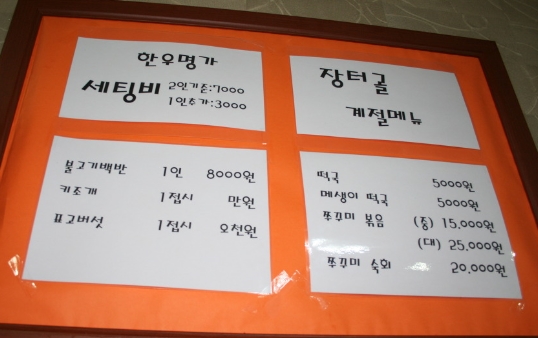 한우명가
세팅비 2인기준:7000
1인추가:3000
불고기백반 1인 8000원
키조개 1접시 만원
표고버섯 1접시 오천원
장터골
계절메뉴
떡국 5000원
메생이 떡국 5000원
쭈꾸미 볶음 (중) 15,000원
(대) 25,000원
쭈꾸미 숙회 20,000원